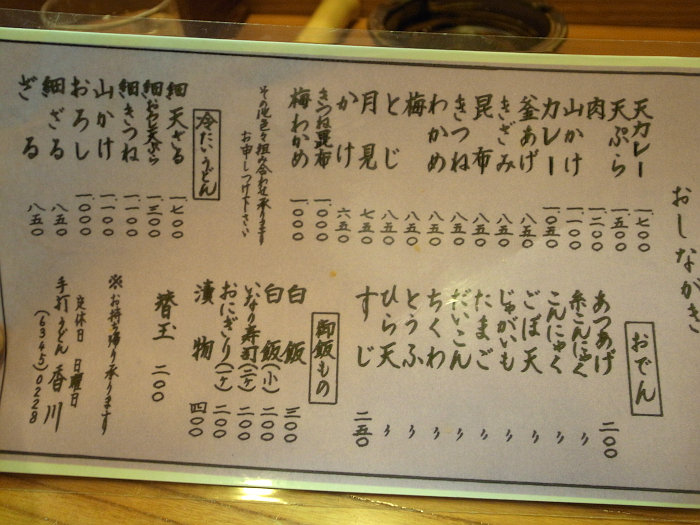 おしながき
天カレー 一、七〇〇
天ぷら 一、五〇〇
肉 一、二〇〇
山かけ 一、一〇〇
カレー 一、〇五〇
釜あげ 八五〇
きざみ 八五〇
昆布 八五〇
きつね 八五〇
わかめ 八五〇
梅 八五〇
とじ 八五〇
月見 七五〇
かけ 六五〇
きつね昆布 一、〇〇〇
梅わかめ 一、〇〇〇
その他色々組み合わせ承ります
お申しつけ下さい
冷たいうどん
細 天ざる 一、七〇〇
細 天ぷら 一、三〇〇
細きつね 一、〇〇〇
山かけ 一、一〇〇
おろし 一、〇〇〇
細ざる 八五〇
ざる 八五〇
おでん
あつあげ 二〇〇
糸こんにゃく 〃
こんにゃく 〃
ごぼ天 〃
じゃがいも 〃
たまご 〃
だいこん 〃
ちくわ 〃
とうふ 〃
ひら天 〃
すじ 二五〇
御飯もの
白飯 三〇〇
白飯(小) 二〇〇
いなり寿司(二ケ) 二〇〇
おにぎり(一ケ) 二〇〇
漬物 四〇〇
替玉 二〇〇
※お持ち帰り承ります
定休日 日曜日
手打うどん 香川
(6345)0228